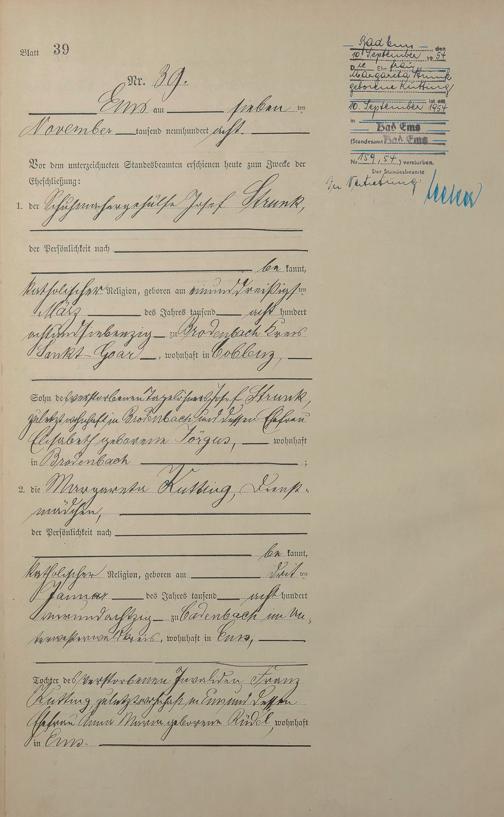 Blatt 39
Nr. 39.
Ems am sieben ten
November tausend neunhundert acht.
Vor dem unterzeichneten Standesbeamten erschienen heute zum Zwecke der
Eheschließung:
1. der Schuhmachergehülfe Josef Strunk,
der Persönlichkeit nach
be kannt,
katholischer Religion, geboren am einunddreißigsten
März des Jahres tausend acht hundert
achtundsiebenzig zu Brodenbach Kreis
Sankt-Goar, wohnhaft in Coblenz,
Sohn des verstorbenen Tagelöhners Josef Strunk,
zuletzt wohnhaft in Brodenbach und dessen Ehefrau
Elisabeth geborene Jörgus, wohnhaft
in Brodenbach ;
2. die Margareta Kutting, Dienst-
mädchen,
der Persönlichkeit nach
be kannt,
katholischer Religion, geboren am drit ten
Januar des Jahres tausend acht hundert
vierundachtzig zu Cadenbach im Un-
terwesterwaldkreis, wohnhaft in Ems,
Tochter des verstorbenen Invaliden Franz
Kutting zuletzt wohnhaft in Ems und dessen
Ehefrau Anna Maria geborene Rüdel, wohnhaft
in Ems.
Bad Ems den
10. September 1954
Die Ehefrau
Margareta Strunk
geborene Kutting
ist am
10. September 1954
in Bad Ems
(Standesamt Bad Ems
Nr. 159/54) verstorben.
Der Standesbeamte
In Vertretung